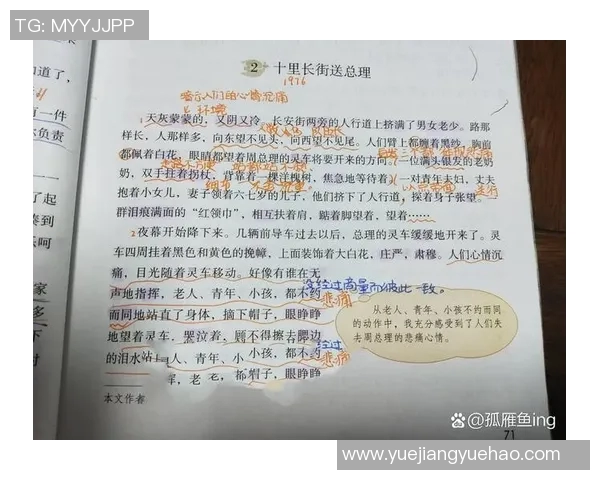 TG: MYYJJPP
道了,
有一件
尔负责
起
凑到
天呵
家
多
下
2 十里长街送总理
1976
暗示人们的心情沉痛
环境
1天灰蒙蒙的，又阴又冷。长安街两旁的人行道上挤满了男女老少。路那
样长，人那样多，向东望不见头，向西望不见尾。人们臂上都缠着黑纱，胸前
都佩着白花，眼睛都望着周总理的灵车将要开来的方向。一位满头银发的老奶
奶，双手拄着拐杖，背靠着一棵洋槐树，焦急地等待着。一对青年夫妇，丈夫
抱着小女儿，妻子领着六七岁的儿子，他们挤下了人行道，探着身子张望。
群泪痕满面的“红领巾”，相互扶着肩，踮着脚望着，望着……
2夜幕开始降下来。几辆前导车过去以后，总理的灵车缓缓地开来了。灵
车四周挂着黑色和黄色的挽幛，上面装饰着大白花，庄严，肃穆。人们心情沉
痛，目光随着灵车移动。好像有谁在无
没经过商量而彼此一致。
声地指挥，老人、青年、小孩，都不约
悲痛
而同地站直了身体，摘下帽子，眼睁睁
地望着灵车，哭泣着，顾不得擦去腮边
经过
的泪水站 人、青年、小孩，都不约
悲痛
挥，老 都帽子，眼睁睁
本文作者
从老人、青年、小孩不约而同
的动作中，我充分感受到了人们失
去周总理的悲痛心情。
百家号@孤雁鱼ing
71
www.yuejiangyuehao.com